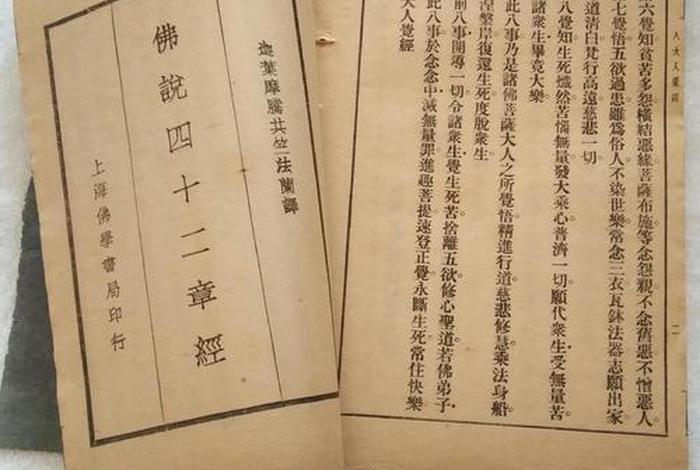 大人覺經
二
六覺知貧苦多怨。橫結惡緣。菩薩布施。等念怨親。不念舊惡。不憎惡人。
七覺悟五欲過患。雖爲俗人。不染世樂。常念三衣。瓦鉢法器。志願出家。
道清白。梵行高遠。慈悲一切。
八覺知生死熾然。苦惱無量。發大乘心。普濟一切。願代衆生。受無量苦。
諸衆生畢竟大樂
此八事。乃是諸佛菩薩大人之所覺悟。精進行道。慈悲修慧。乘法身船。
涅槃岸。復還生死。度脫衆生
前八事。開導一切。令諸衆生。覺生死苦。捨離五欲。修心聖道。若佛弟子。
此八事。於念念中。滅無量罪。進趣菩提。速登正覺。永斷生死。常住快樂
大人覺經
迦葉摩騰共竺法蘭譯
佛說四十二章經
上海佛學書局印行